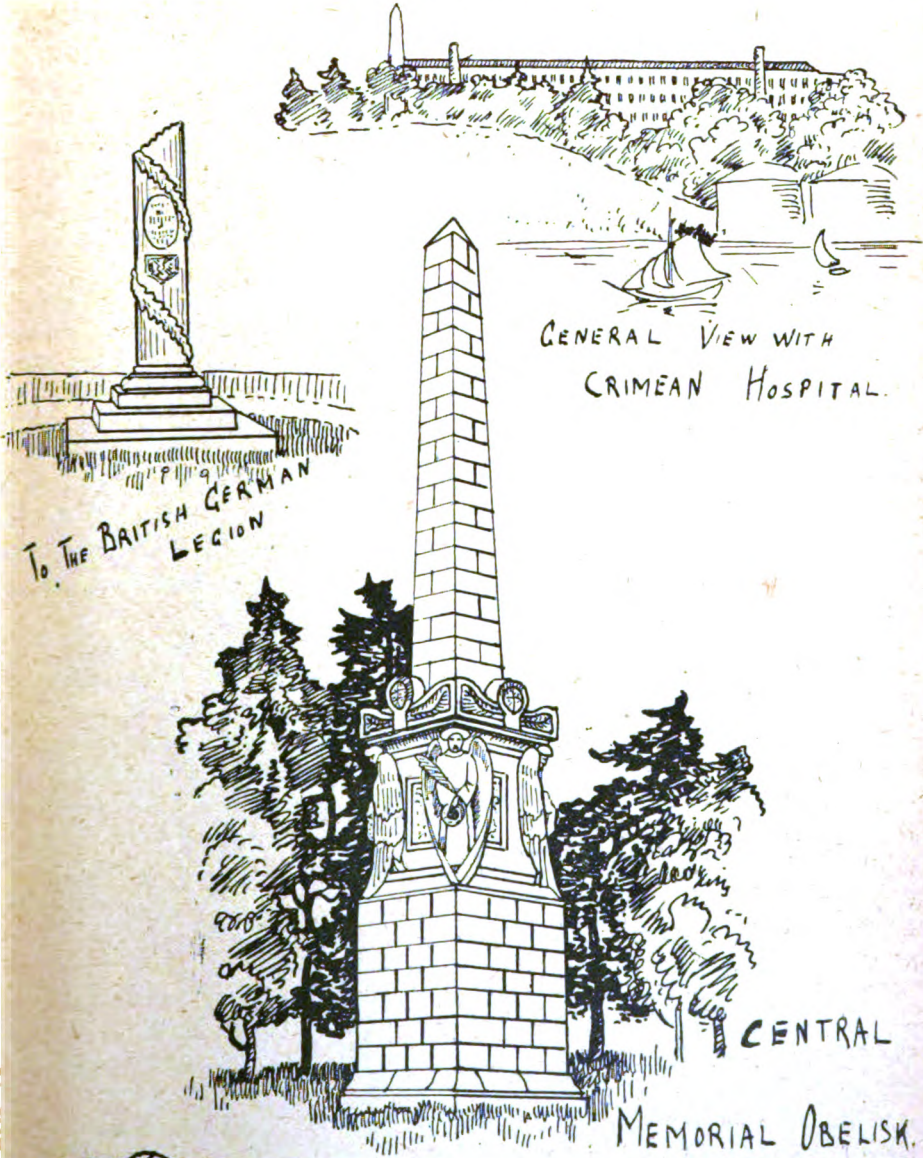 GENERAL VIEW WITH
CRIMEAN HOSPITAL.
TO THE BRITISH GERMAN
LEGION
CENTRAL
MEMORIAL OBELISK.